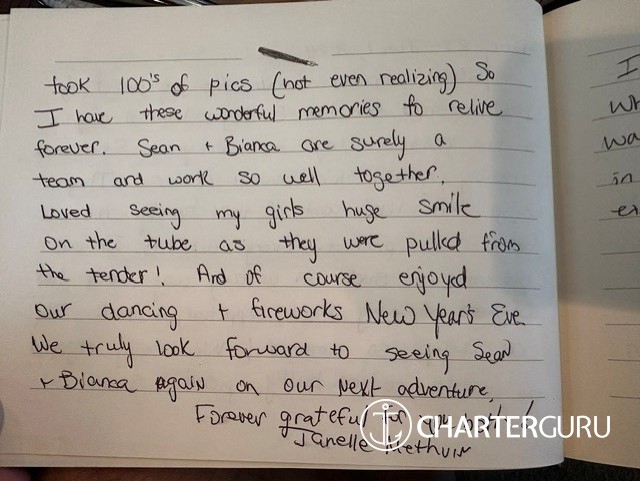 took 100's of pics (not even realizing) So
I have these wonderful memories to relive
forever. Sean + Bianca are surely a
team and work so well together.
Loved seeing my girls huge smile
on the tube as they were pulled from
the tender! And of course enjoyed
our dancing + fireworks New Year's Eve
We truly look forward to seeing Sean
+ Bianca again on our next adventure.
Forever grateful for you both!
Janelle Methvin
CHARTERGURU
I
wh
wa
in